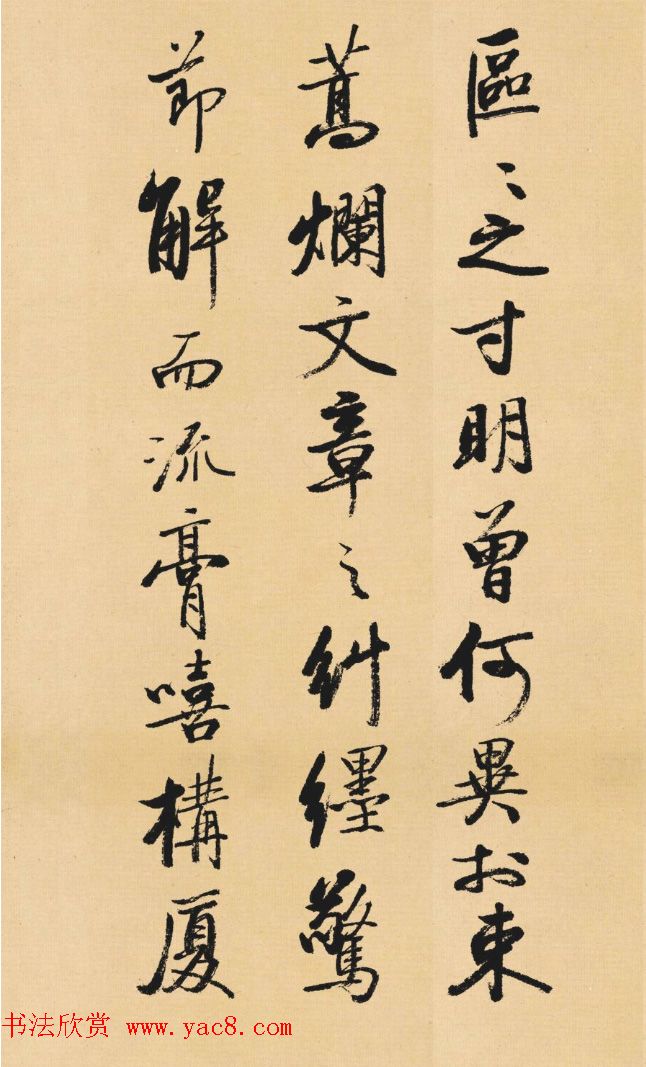 區〻之寸明曾何異於束
蒿爛文章之糾纆驚
節解而流膏嘻構厦
书法欣赏 www.yac8.com